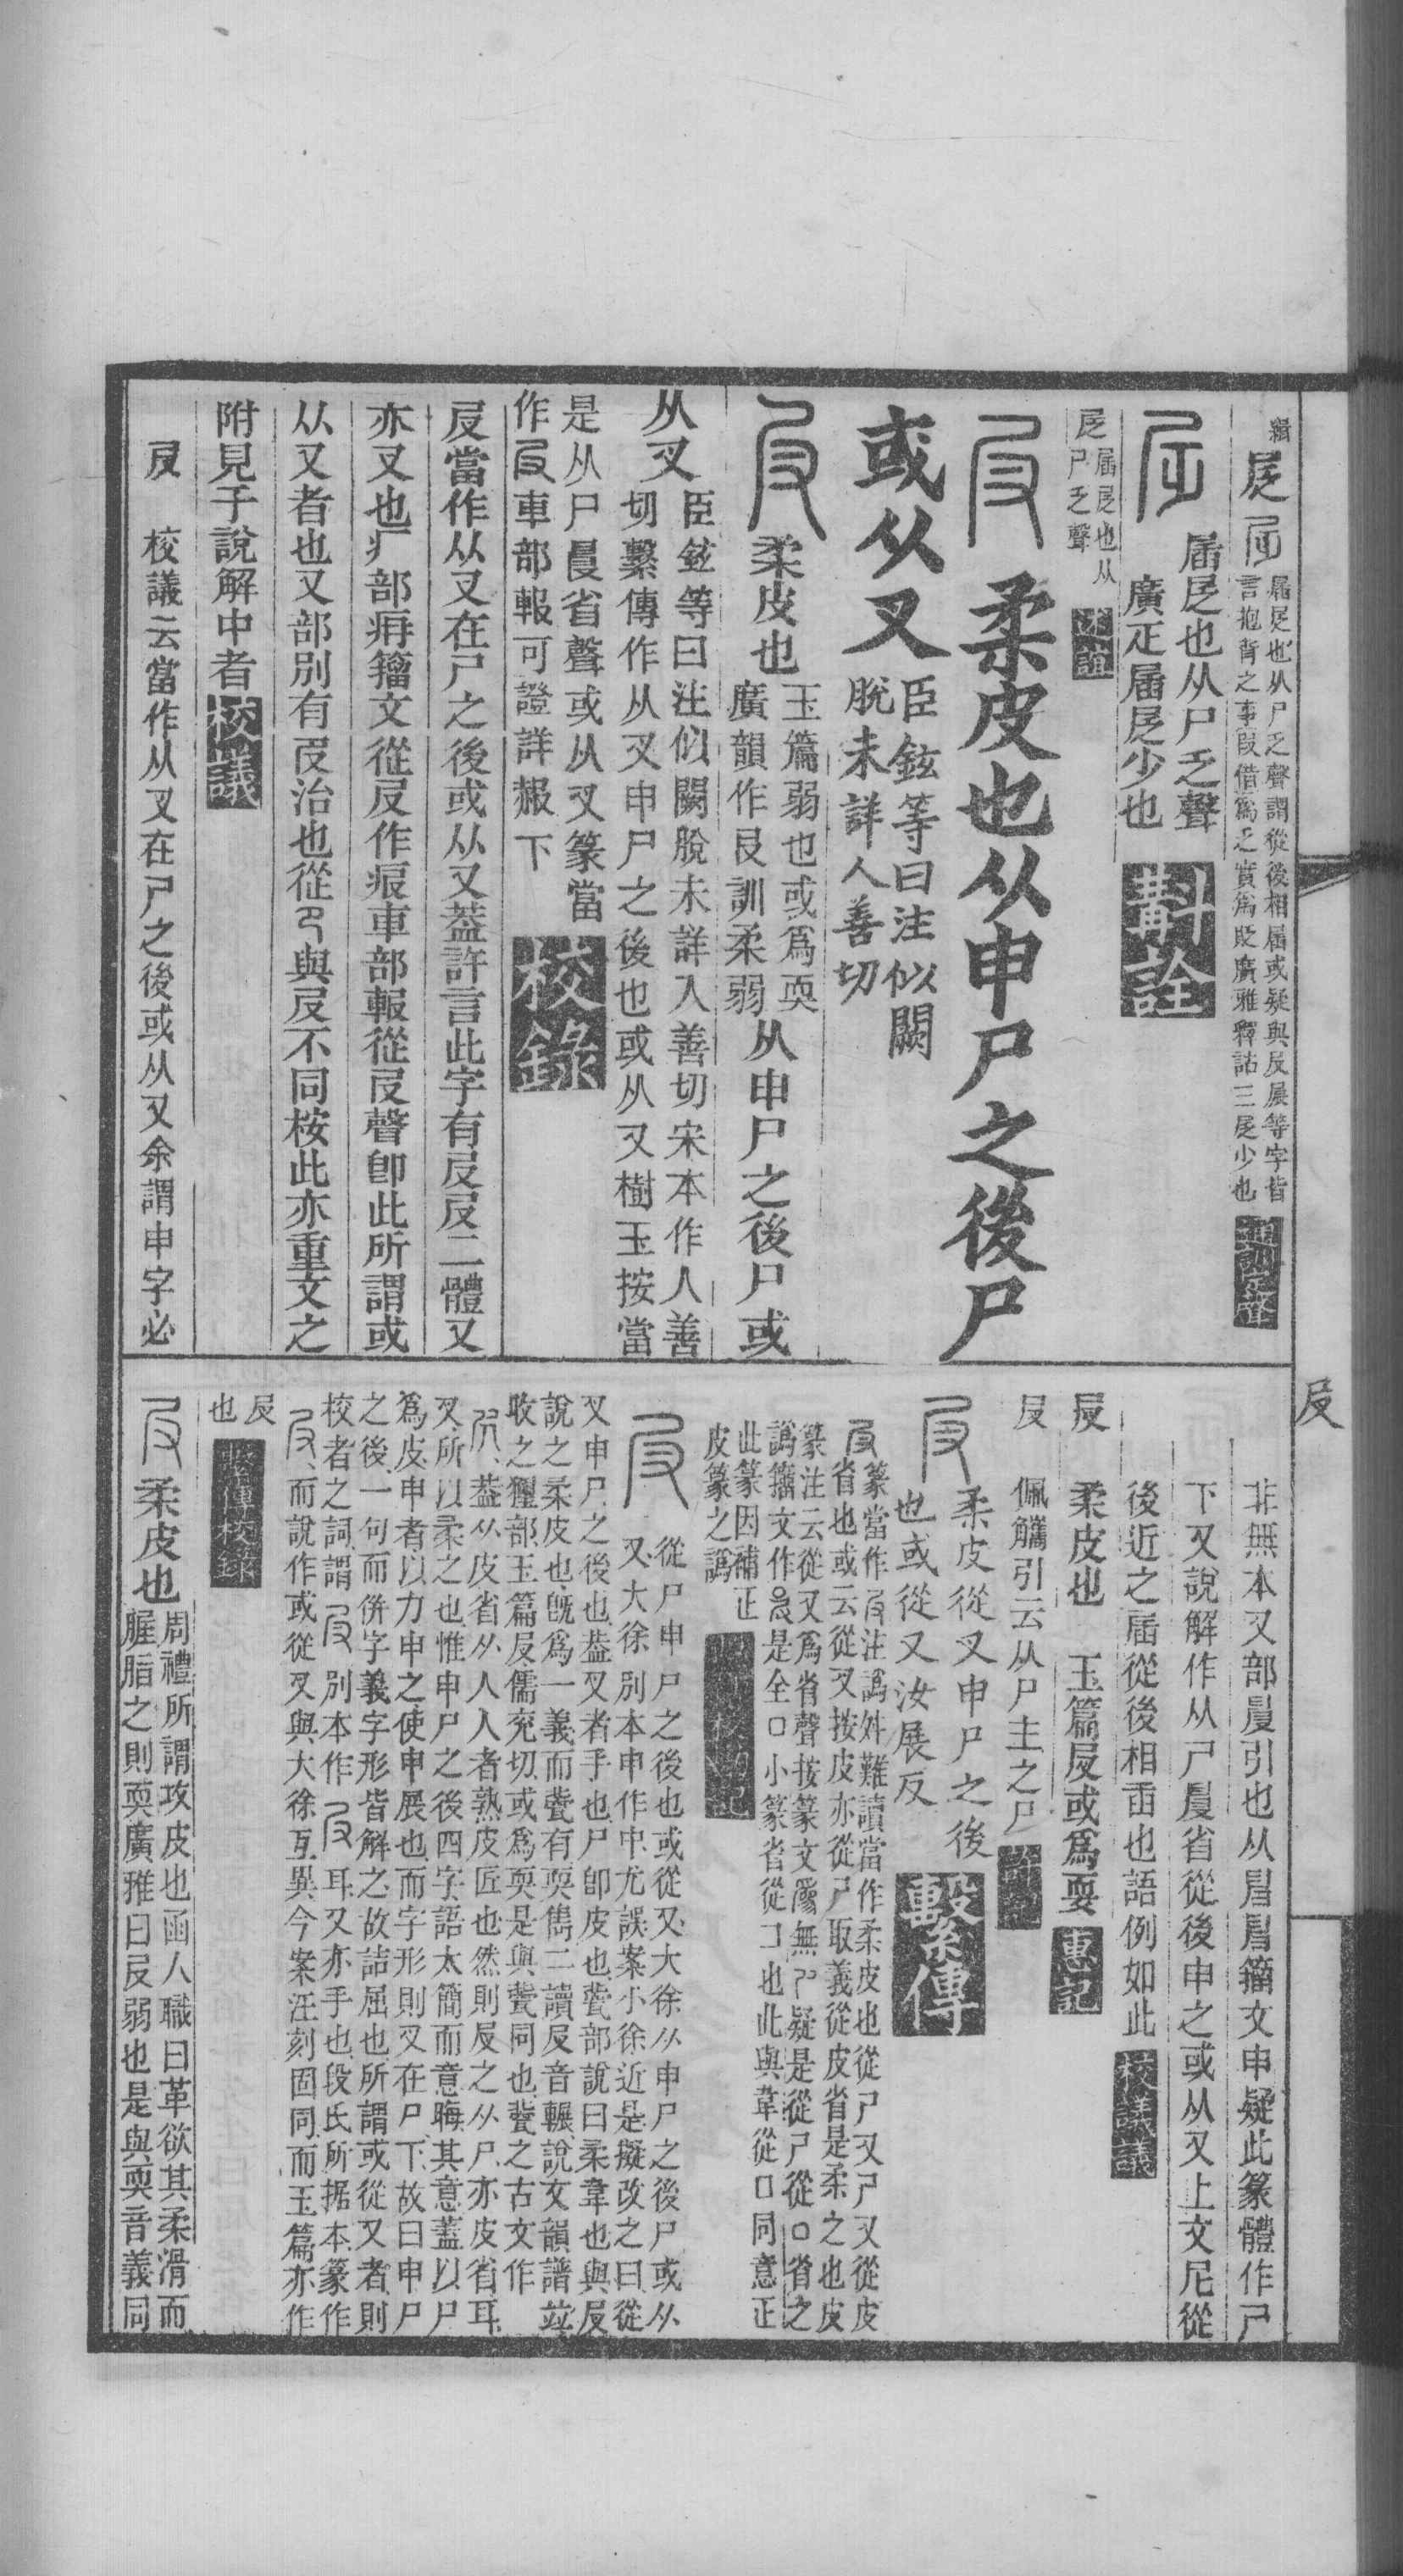 𡰯
輯
屆𡰯也从尸乏聲謂從後相屆或疑與㞋屐等字皆
言抱背之事叚借爲乏實爲貶廣雅釋詁三𡰯少也
通訓定聲
屆𡰯也从尸乏聲
廣疋屆𡰯少也
斠詮
屆𡰯也从
𡰯尸乏聲
柔皮也从申尸之後尸
或从又
臣鉉等曰注似闕
脫未詳人善切
柔皮也
玉篇弱也或爲耎
廣韻作㞋訓柔弱
从申尸之後尸或
从叉
臣鉉等曰注似闕脫未詳人善切宋本作人善
切繫傳作从叉申尸之後也或从又樹玉按當
是从尸㬅省聲或从叉篆當
作㞋車部報可證詳赧下
校錄
㞋當作从又在尸之後或从又蓋許言此字有㞋㞋二體又
亦叉也疒部㾊籀文從㞋作㾊車部報從㞋聲卽此所謂或
从又者也又部別有𠬝治也從卪與㞋不同桉此亦重文之
附見于說解中者
校議
㞋 校議云當作从叉在尸之後或从又余謂申字必
非無本又部㬅引也从㫃㫃籀文申疑此篆體作尸
下又說解作从尸㬅省從後申之或从叉上文尼從
後近之屆從後相臿也語例如此
校議議
㞋 柔皮也 玉篇㞋或爲耎
惠記
㞋 佩觿引云从尸主之尸
柔皮從叉申尸之後
也或從又汝展反
繫傳
篆當作㞋注譌舛難讀當作柔皮也從尸又尸又從皮
省也或云從叉按皮亦從尸取義從皮省是柔之也皮
篆注云從又爲省聲按篆文
譌籀文作是全口小篆省從コ也此與韋從口同意正
此篆因補正
皮篆之譌
從尸申尸之後也或從又大徐从申尸之後尸或从
又大徐別本申作中尤誤案小徐近是擬改之曰從
叉申尸之後也葢叉者手也尸卽皮也㼱部說曰柔韋也與㞋
說之柔皮也旣爲一義而㼱有耎雋二讀㞋音輾說文韻譜竝
收之獮部玉篇㞋儒兖切或爲耎是與㼱同也㼱之古文作
葢从皮省从人人者熟皮匠也然則㞋之从尸亦皮省耳
叉所以柔之也惟申尸之後四字語太簡而意晦其意蓋以尸
爲皮申者以力申之使申展也而字形則叉在尸下故曰申尸
之後一句而併字義字形皆解之故詰屈也所謂或從又者則
校者之詞謂㞋別本作㞋耳又亦手也段氏所据本篆作
㞋而說作或從叉與大徐互異今案汪刻固同而玉篇亦作
㞋
也
繫傳校錄
柔皮也
周禮所謂攻皮也函人職曰革欲其柔滑而
腥脂之則耎廣雅曰㞋弱也是與耎音義同
㞋